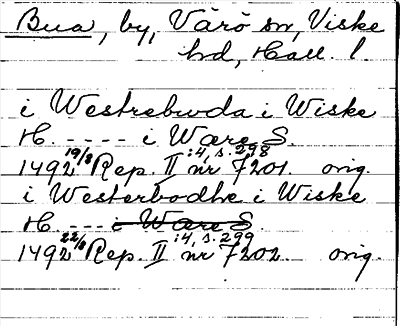 Bua, by, Värö sn, Viske
hd, Hall. l.
i Westrebwda i Wiske
H. - - - - i Ware S.
1492 19/8 Rep. II :4, s. 298 nr 7201. orig.
i Westerbodhe i Wiske
H. - - - i Ware S.
1492 22/8 Rep. II :4, s. 299 nr 7202. orig.